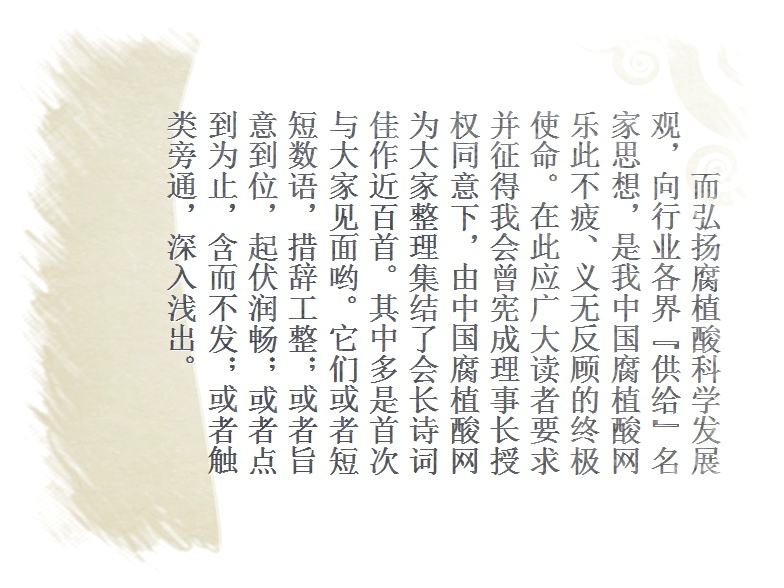 而弘扬腐植酸科学发展
观，向行业各界『供给』名
家思想，是我中国腐植酸网
乐此不疲、义无反顾的终极
使命。在此应广大读者要求
并征得我会曾宪成理事长授
权同意下，由中国腐植酸网
为大家整理集结了会长诗词
佳作近百首。其中多是首次
与大家见面哟。它们或者短
短数语，措辞工整；或者旨
意到位，起伏润畅；或者点
到为止，含而不发；或者触
类旁通，深入浅出。